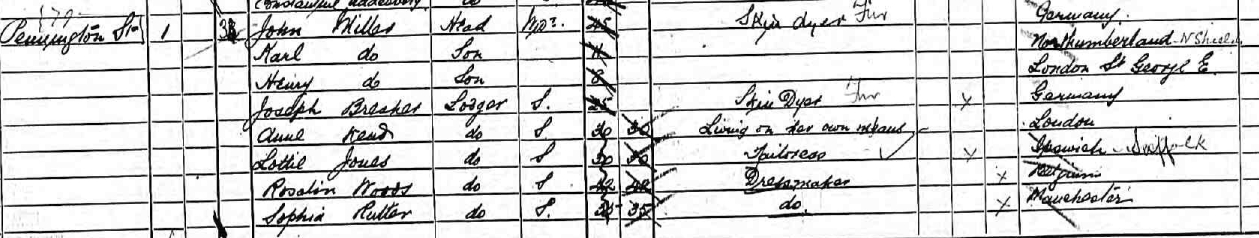 do
Pennington St 1 38 John Miller Head Wdr 45 Skin dyer Fur Germany
Karl do Son Northumberland N Shields
Henry do Son London St George E.
Joseph Breaker Lodger S. 25 Skin Dyer Fur X Germany
Anne Kend do S 30 30 Living on her own means London
Lottie Jones do S 30 30 Tailoress X Ipswich Suffolk
Rosalin Woods do S 42 42 Dressmaker X Belgium
Sophia Rutter do S. 35 35 do. X Manchester